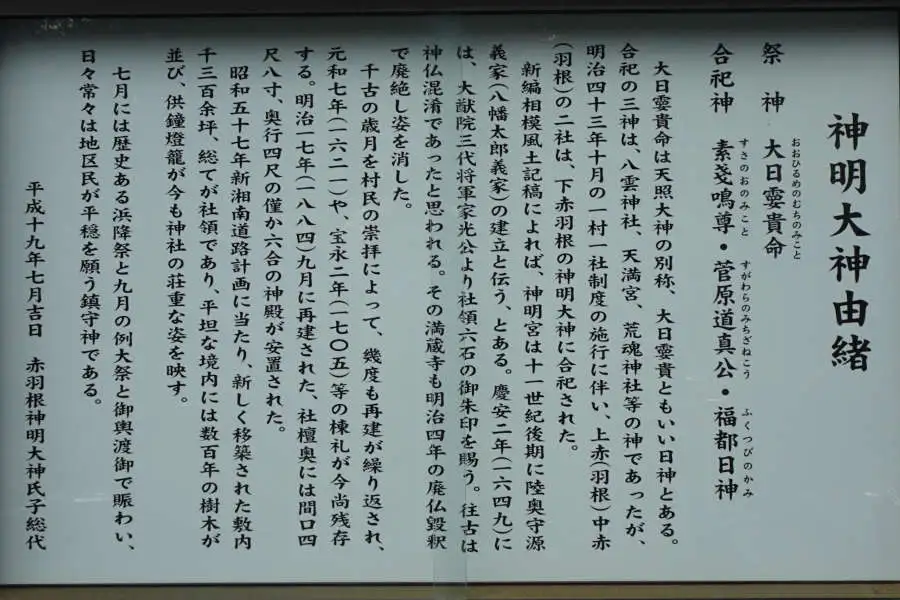 神明大神由緒
祭　神　大日孁貴命
おおひるめのむちのみこと
合祀神　素戔鳴尊・菅原道真公・福都日神
すさのおのみこと　すがわらのみちざねこう　ふくつびのかみ
大日孁貴命は天照大神の別称、大日孁貴ともいい日神とある。
合祀の三神は、八雲神社、天満宮、荒魂神社等の神であったが、
明治四十三年十月の一村一社制度の施行に伴い、上赤(羽根)中赤
(羽根)の二社は、下赤羽根の神明大神に合祀された。
新編相模風土記稿によれば、神明宮は十一世紀後期に陸奥守源
義家(八幡太郎義家)の建立と伝う、とある。慶安二年(一六四九)に
は、大猷院三代将軍家光公より社領六石の御朱印を賜う。往古は
神仏混淆であったと思われる。その満蔵寺も明治四年の廃仏毀釈
で廃絶し姿を消した。
千古の歳月を村民の崇拝によって、幾度も再建が繰り返され、
元和七年(一六二一)や、宝永二年(一七〇五)等の棟札が今尚残存
する。明治一七年(一八八四)九月に再建された、社檀奥には間口四
尺八寸、奥行四尺の僅か六合の神殿が安置された。
昭和五十七年新湘南道路計画に当たり、新しく移築された敷内
千三百余坪、総てが社領であり、平坦な境内には数百年の樹木が
並び、供鐘燈籠が今も神社の荘重な姿を映す。
七月には歴史ある浜降祭と九月の例大祭と御輿渡御で賑わい、
日々常々は地区民が平穏を願う鎮守神である。
平成十九年七月吉日　赤羽根神明大神氏子総代